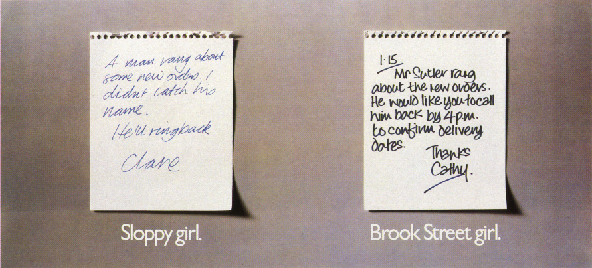 A man rang about
some new orders, I
didnt catch his
name.
He'll ring back
Clare
Sloppy girl.
1·15
Mr Sutler rang
about the new orders.
He would like you to call
him back by 4 p.m.
to confirm delivery
dates.
Thanks
Cathy.
Brook Street girl.